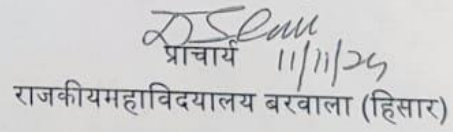 प्राचार्य 11/11/25
राजकीयमहाविदयालय बरवाला (हिसार)